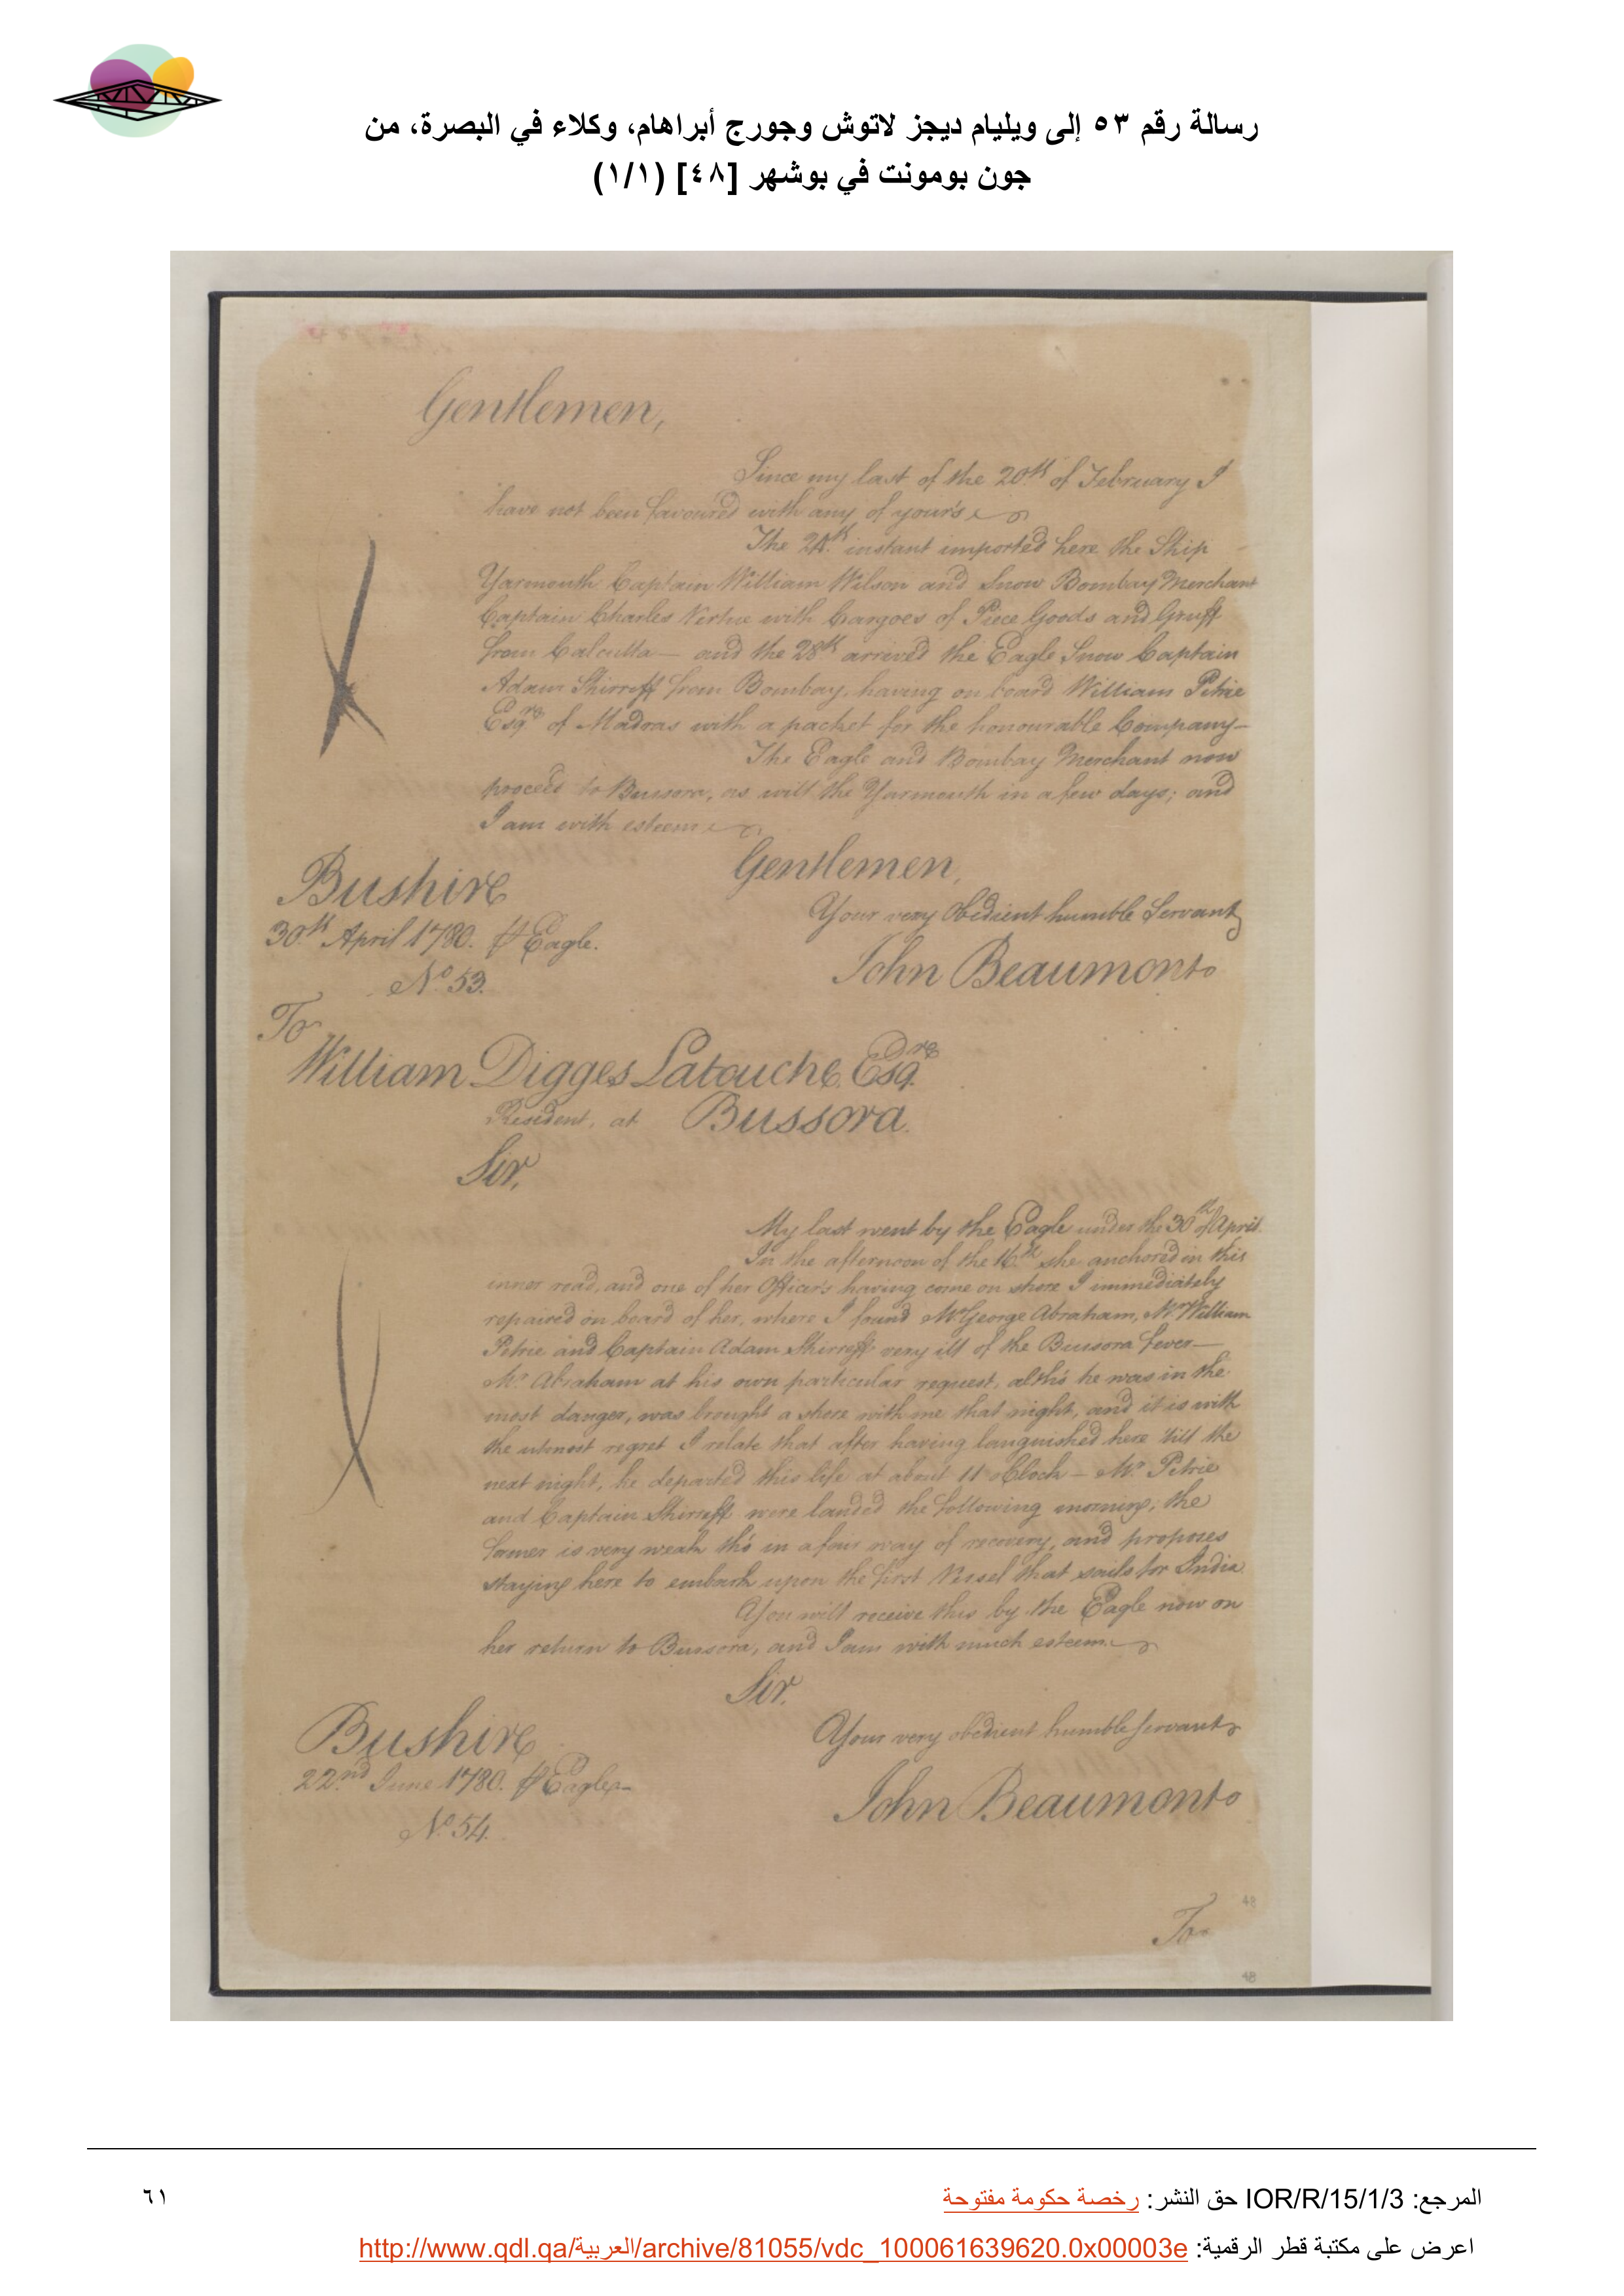 رسالة رقم ٥٣ إلى ويليام ديجز لاتوش وجورج أبراهام، وكلاء في البصرة، من
جون بومونت في بوشهر [٤٨] (١/١)
Gentlemen,
Since my last of the 20th of February I
have not been favoured with any of your's
The 24th instant imported here the Ship
Yarmouth Captain William Wilson and Snow Bombay Merchant
Captain Charles Virtue with Cargoes of Piece Goods and Gruff
from Calcutta — and the 28th arrived the Eagle Snow Captain
Adam Shirreff from Bombay, having on board William Petrie
Esqre of Madras with a packet for the honourable Company—
The Eagle and Bombay Merchant now
proceed to Bussora, as will the Yarmouth in a few days; and
I am with esteem
Gentlemen,
Bushire
Your very Obedient humble Servant
30th April 1780. ⅌ Eagle.
John Beaumont
No. 53.
To
William Digges Latouche, Esqre
Resident, at Bussora.
Sir,
My last went by the Eagle under the 30th of April.
In the afternoon of the 16th she anchored in this
inner road, and one of her Officers having come on shore I immediately
repaired on board of her, where I found Mr George Abraham, Mr William
Petrie and Captain Adam Shirreff very ill of the Bussora fever—
Mr Abraham at his own particular request, altho' he was in the
most danger, was brought a shore with me that night, and it is with
the utmost regret I relate that after having languished here 'till the
next night, he departed this life at about 11 o'Clock — Mr Petrie
and Captain Shirreff were landed the following morning; the
former is very weak tho' in a fair way of recovery, and proposes
staying here to embark upon the first Vessel that sails for India.
You will receive this by the Eagle now on
her return to Bussora, and I am with much esteem
Sir,
Bushire
Your very obedient humble servant
22nd June 1780. ⅌ Eagle—
John Beaumont
No. 54.
48
To
48
المرجع: IOR/R/15/1/3 حق النشر: رخصة حكومة مفتوحة
٦١
اعرض على مكتبة قطر الرقمية: http://www.qdl.qa/العربية/archive/81055/vdc_100061639620.0x00003e